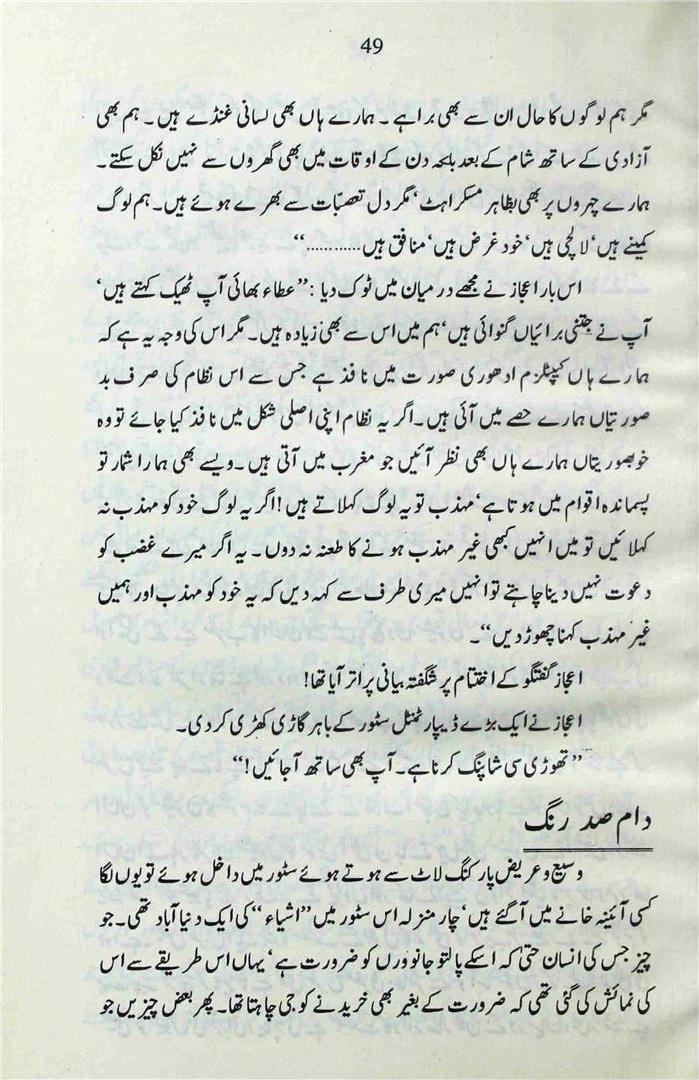 49
مگر ہم لوگوں کا حال ان سے بھی برا ہے ۔ ہمارے ہاں بھی لسانی غنڈے ہیں ۔ ہم بھی
آزادی کے ساتھ شام کے بعد بلحہ دن کے اوقات میں بھی گھروں سے نہیں نکل سکتے ۔
ہمارے چہروں پر بھی بظاہر مسکراہٹ ‘ مگر دل تعصبّات سے بھرے ہوئے ہیں ۔ ہم لوگ
کمینے ہیں‘ لالچی ہیں‘ خود غرض ہیں‘ منافق ہیں …………‘‘
اس بار اعجاز نے مجھے درمیان میں ٹوک دیا : ’’عطاء بھائی آپ ٹھیک کہتے ہیں‘
آپ نے جتنی برائیاں گنوائی ہیں‘ ہم میں اس سے بھی زیادہ ہیں ۔ مگر اس کی وجہ یہ ہے کہ
ہمارے ہاں کیپٹلزم ادھوری صورت میں نافذ ہے جس سے اس نظام کی صرف بد
صورتیاں ہمارے حصے میں آئی ہیں ۔ اگر یہ نظام اپنی اصلی شکل میں نافذ کیا جائے تو وہ
خوبصورتیاں ہمارے ہاں بھی نظر آئیں جو مغرب میں آتی ہیں ۔ ویسے بھی ہمارا شمار تو
پسماندہ اقوام میں ہوتا ہے‘ مہذب تو یہ لوگ کہلاتے ہیں ! اگر یہ لوگ خود کو مہذب نہ
کہلائیں تو میں انہیں کبھی غیر مہذب ہونے کا طعنہ نہ دوں ۔ یہ اگر میرے غضب کو
دعوت نہیں دینا چاہتے تو انہیں میری طرف سے کہہ دیں کہ یہ خود کو مہذب اور ہمیں
غیر مہذب کہنا چھوڑ دیں‘‘ ۔
اعجاز گفتگو کے اختتام پر شگفتہ بیانی پر اتر آیا تھا !
اعجاز نے ایک بڑے ڈیپارٹمنٹل سٹور کے باہر گاڑی کھڑی کر دی ۔
’’تھوڑی سی شاپنگ کرنا ہے ۔ آپ بھی ساتھ آجائیں !‘‘
دام صد رنگ
وسیع و عریض پارکنگ لاٹ سے ہوتے ہوئے سٹور میں داخل ہوئے تو یوں لگا
کسی آئینہ خانے میں آگئے ہیں‘ چار منزلہ اس سٹور میں ’’اشیاء‘‘ کی ایک دنیا آباد تھی ۔ جو
چیز جس کی انسان حتیٰ کہ اسکے پالتو جانوروں کو ضرورت ہے‘ یہاں اس طریقے سے اس
کی نمائش کی گئی تھی کہ ضرورت کے بغیر بھی خریدنے کو جی چاہتا تھا ۔ پھر بعض چیزیں جو